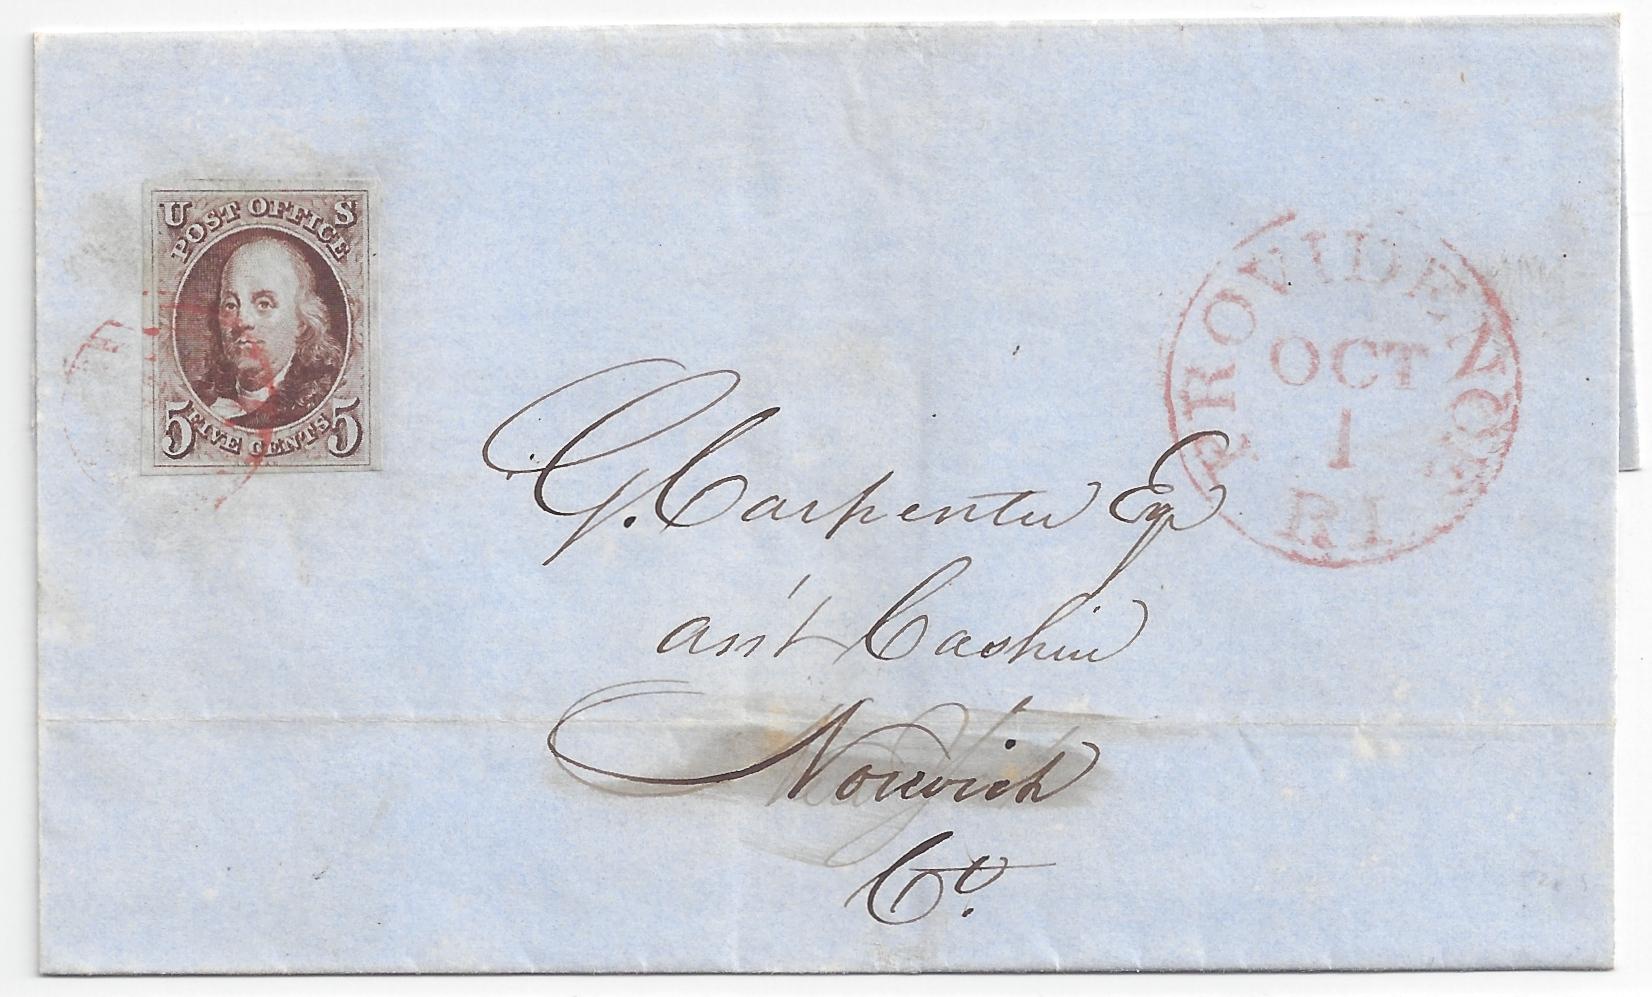 U S
POST OFFICE
5 FIVE CENTS 5
PROVIDENCE
OCT
1
RI
G. Carpenter Esq
ass't Cashier
Norwich
Co.